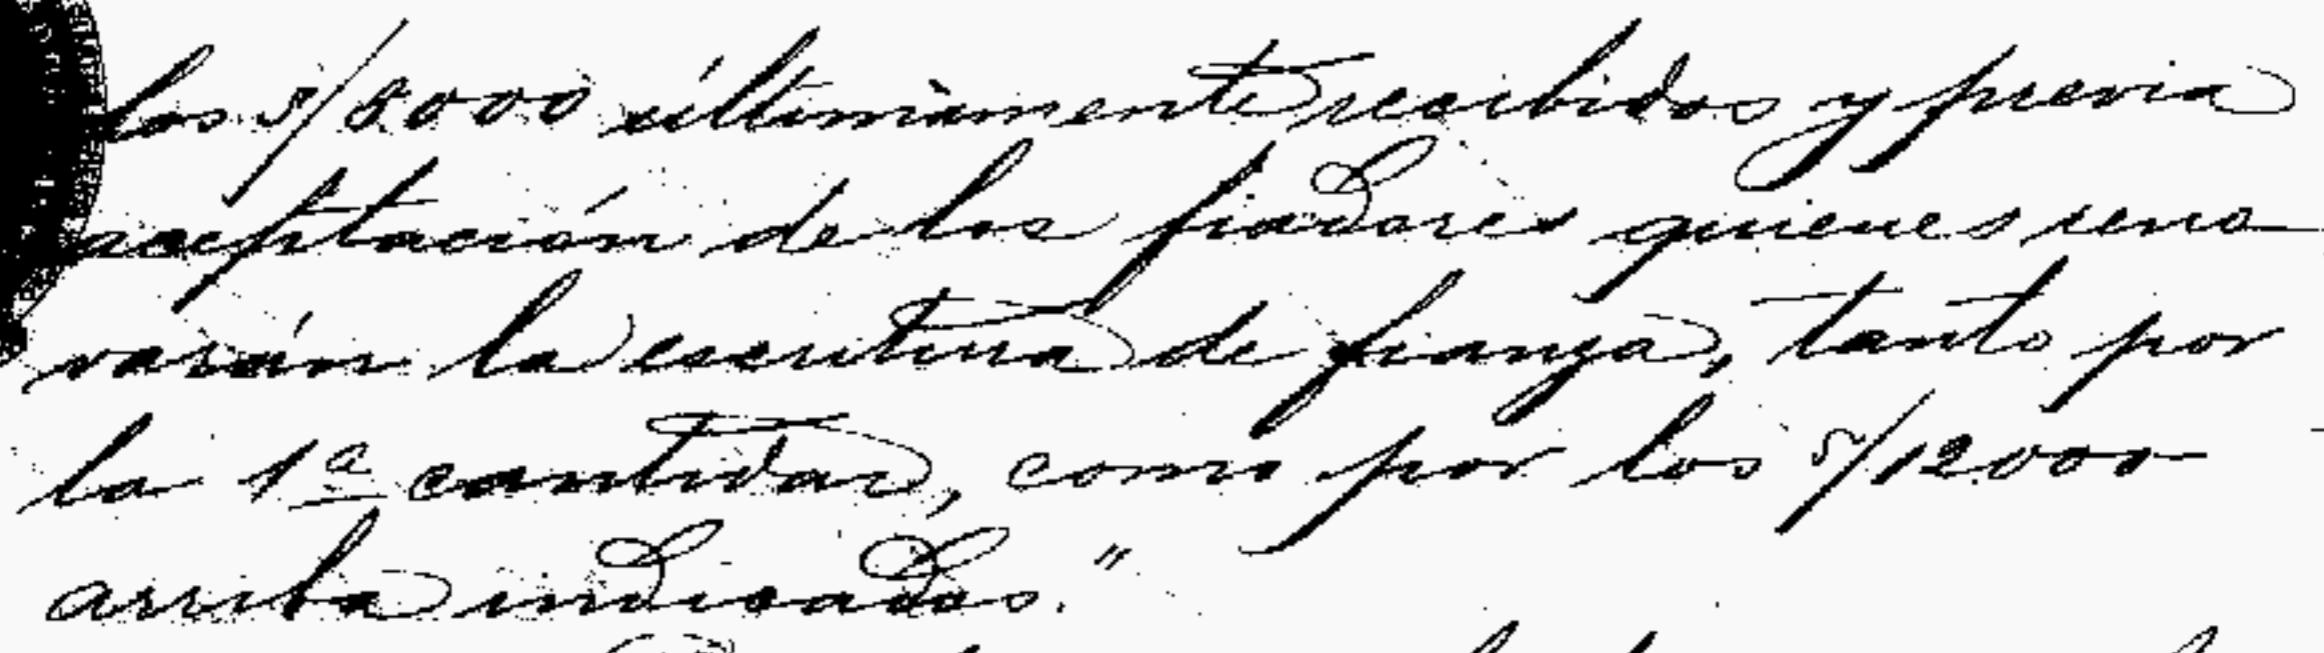 los S/8000 últimamente recibidos y previa
aceptación de los fiadores quienes reno-
varán la escritura de fianza, tanto por
la 1ª cantidad, como por los S/12000
arriba indicados."